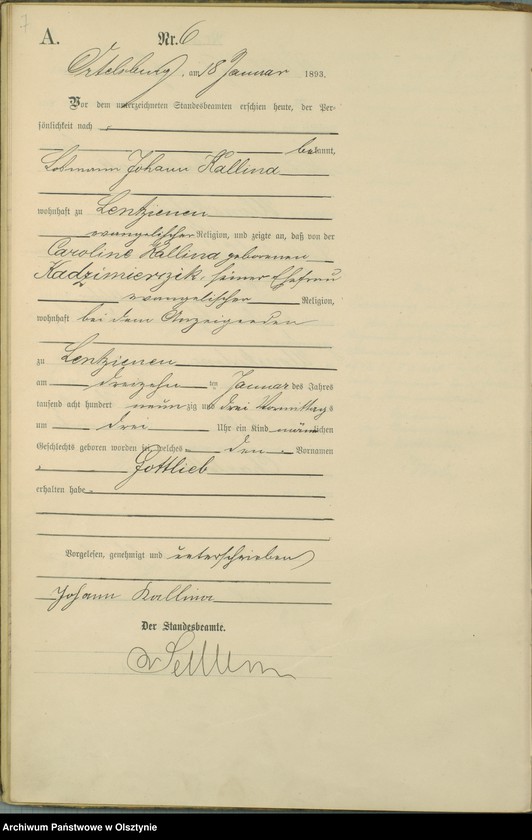 7
A.
Nr. 6
Ortelsburg, am 18 Januar 1893.
Vor dem unterzeichneten Standesbeamten erschien heute, der Per-
sönlichkeit nach
bekannt,
Losmann Johann Kallina
wohnhaft zu Lentzienen
evangelischer Religion, und zeigte an, daß von der
Caroline Kallina geborenen
Kadzimierczik, seiner Ehefrau
evangelischer Religion,
wohnhaft bei dem Anzeigenden
zu Lentzienen
am dreizehn ten Januar des Jahres
tausend acht hundert neunzig und drei Vormittags
um drei Uhr ein Kind männlichen
Geschlechts geboren worden sei, welches den Vornamen
Gottlieb
erhalten habe.
Vorgelesen, genehmigt und unterschrieben
Johann Kallina
Der Standesbeamte.
Archiwum Państwowe w Olsztynie